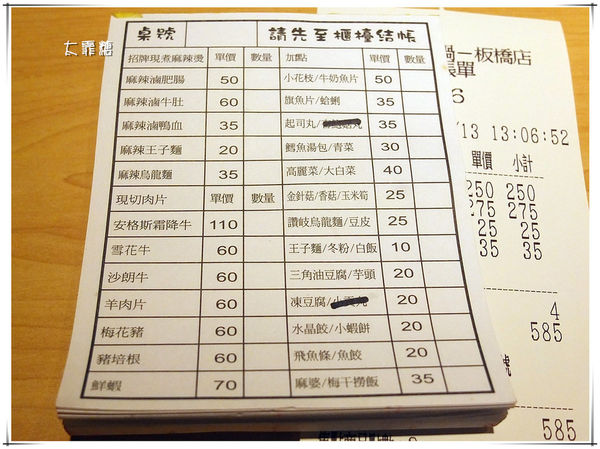 太霸糖
桌號 請先至櫃檯結帳
招牌現煮麻辣燙 單價 數量 加點 單價 數量
麻辣滷肥腸 50 小花枝/牛奶魚片 50
麻辣滷牛肚 60 旗魚片/蛤蜊 35
麻辣滷鴨血 35 起司丸/ 35
麻辣王子麵 20 鱈魚湯包/青菜 30
麻辣烏龍麵 35 高麗菜/大白菜 40
現切肉片 單價 數量 金針菇/香菇/玉米筍 25
安格斯霜降牛 110 讚岐烏龍麵/豆皮 25
雪花牛 60 王子麵/冬粉/白飯 10
沙朗牛 60 三角油豆腐/芋頭 20
羊肉片 60 凍豆腐/ 20
梅花豬 60 水晶餃/小蝦餅 20
豬培根 60 飛魚條/魚餃 20
鮮蝦 70 麻婆/梅干撈飯 35
鍋-板橋店
帳單
6
/13 13:06:52
單價 小計
250 250
275 275
25 25
35 35
4
585
號
585